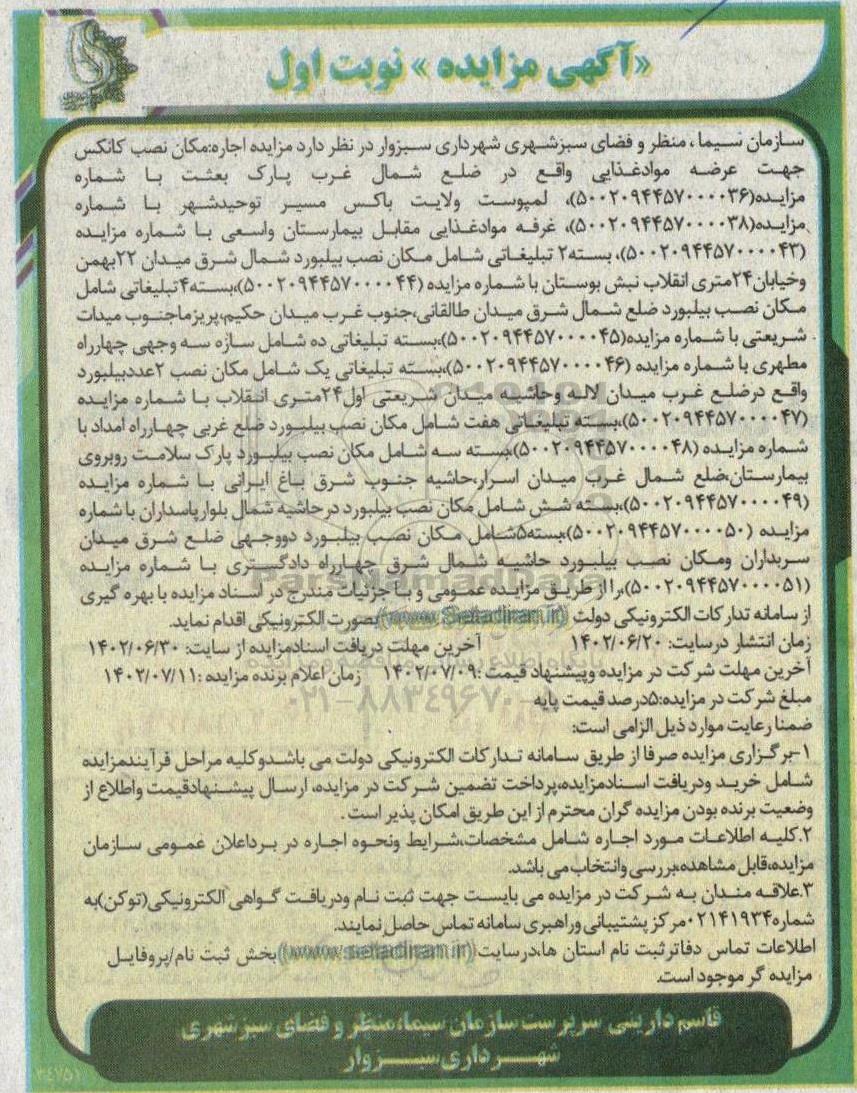 «آگهی مزایده» نوبت اول
سازمان سیما، منظر و فضای سبزشهری شهرداری سبزوار در نظر دارد مزایده اجاره:مکان نصب کانکس
جهت عرضه موادغذایی واقع در ضلع شمال غرب پارک بعثت با شماره
مزایده(۵۰۰۲۰۹۴۴۵۷۰۰۰۰۳۶)، لمپوست ولایت باکس مسیر توحیدشهر با شماره
مزایده(۵۰۰۲۰۹۴۴۵۷۰۰۰۰۳۸)، غرفه موادغذایی مقابل بیمارستان واسعی با شماره مزایده
(۵۰۰۲۰۹۴۴۵۷۰۰۰۰۴۳)، بسته۲ تبلیغاتی شامل مکان نصب بیلبورد شمال شرق میدان ۲۲بهمن
وخیابان۲۴متری انقلاب نبش بوستان با شماره مزایده (۵۰۰۲۰۹۴۴۵۷۰۰۰۰۴۴)،بسته۴تبلیغاتی شامل
مکان نصب بیلبورد ضلع شمال شرق میدان طالقانی،جنوب غرب میدان حکیم،پریزماجنوب میدات
شریعتی با شماره مزایده(۵۰۰۲۰۹۴۴۵۷۰۰۰۰۴۵)،بسته تبلیغاتی ده شامل سازه سه وجهی چهارراه
مطهری با شماره مزایده (۵۰۰۲۰۹۴۴۵۷۰۰۰۰۴۶)،بسته تبلیغاتی یک شامل مکان نصب ۲عددبیلبورد
واقع درضلع غرب میدان لاله وحاشیه میدان شریعتی اول۲۴متری انقلاب با شماره مزایده
(۵۰۰۲۰۹۴۴۵۷۰۰۰۰۴۷)،بسته تبلیغاتی هفت شامل مکان نصب بیلبورد ضلع غربی چهارراه امداد با
شماره مزایده (۵۰۰۲۰۹۴۴۵۷۰۰۰۰۴۸)،بسته سه شامل مکان نصب بیلبورد پارک سلامت روبروی
بیمارستان،ضلع شمال غرب میدان اسرار،حاشیه جنوب شرق باغ ایرانی با شماره مزایده
(۵۰۰۲۰۹۴۴۵۷۰۰۰۰۴۹)،بسته شش شامل مکان نصب بیلبورد درحاشیه شمال بلوارپاسداران با شماره
مزایده (۵۰۰۲۰۹۴۴۵۷۰۰۰۰۵۰)،بسته۵شامل مکان نصب بیلبورد دووجهی ضلع شرق میدان
سربداران ومکان نصب بیلبورد حاشیه شمال شرق چهارراه دادگستری با شماره مزایده
(۵۰۰۲۰۹۴۴۵۷۰۰۰۰۵۱)،را از طریق مزایده عمومی و با جزئیات مندرج در اسناد مزایده با بهره گیری
از سامانه تدارکات الکترونیکی دولت (www.Setadiran.ir)بصورت الکترونیکی اقدام نماید.
زمان انتشار درسایت: ۱۴۰۲/۰۶/۲۰ آخرین مهلت دریافت اسنادمزایده از سایت: ۱۴۰۲/۰۶/۳۰
آخرین مهلت شرکت در مزایده وپیشنهاد قیمت :۱۴۰۲/۰۷/۰۹ زمان اعلام برنده مزایده :۱۴۰۲/۰۷/۱۱
مبلغ شرکت در مزایده:۵درصد قیمت پایه
ضمنا رعایت موارد ذیل الزامی است:
۱-برگزاری مزایده صرفا از طریق سامانه تدارکات الکترونیکی دولت می باشدوکلیه مراحل فرآیندمزایده
شامل خرید ودریافت اسنادمزایده،پرداخت تضمین شرکت در مزایده، ارسال پیشنهادقیمت واطلاع از
وضعیت برنده بودن مزایده گران محترم از این طریق امکان پذیر است.
۲.کلیه اطلاعات مورد اجاره شامل مشخصات،شرایط ونحوه اجاره در برداعلان عمومی سازمان
مزایده،قابل مشاهده،بررسی وانتخاب می باشد.
۳.علاقه مندان به شرکت در مزایده می بایست جهت ثبت نام ودریافت گواهی الکترونیکی(توکن)به
شماره۰۲۱۴۱۹۳۴مرکز پشتیبانی وراهبری سامانه تماس حاصل نمایند.
اطلاعات تماس دفاترثبت نام استان ها،درسایت(www.setadiran.ir)بخش ثبت نام/پروفایل
مزایده گر موجود است.
قاسم دارینی سرپرست سازمان سیما،منظر و فضای سبز شهری
شهرداری سبزوار
ParsNamadData
۰۲۱-۸۸۳۴۹۶۷۰-۵